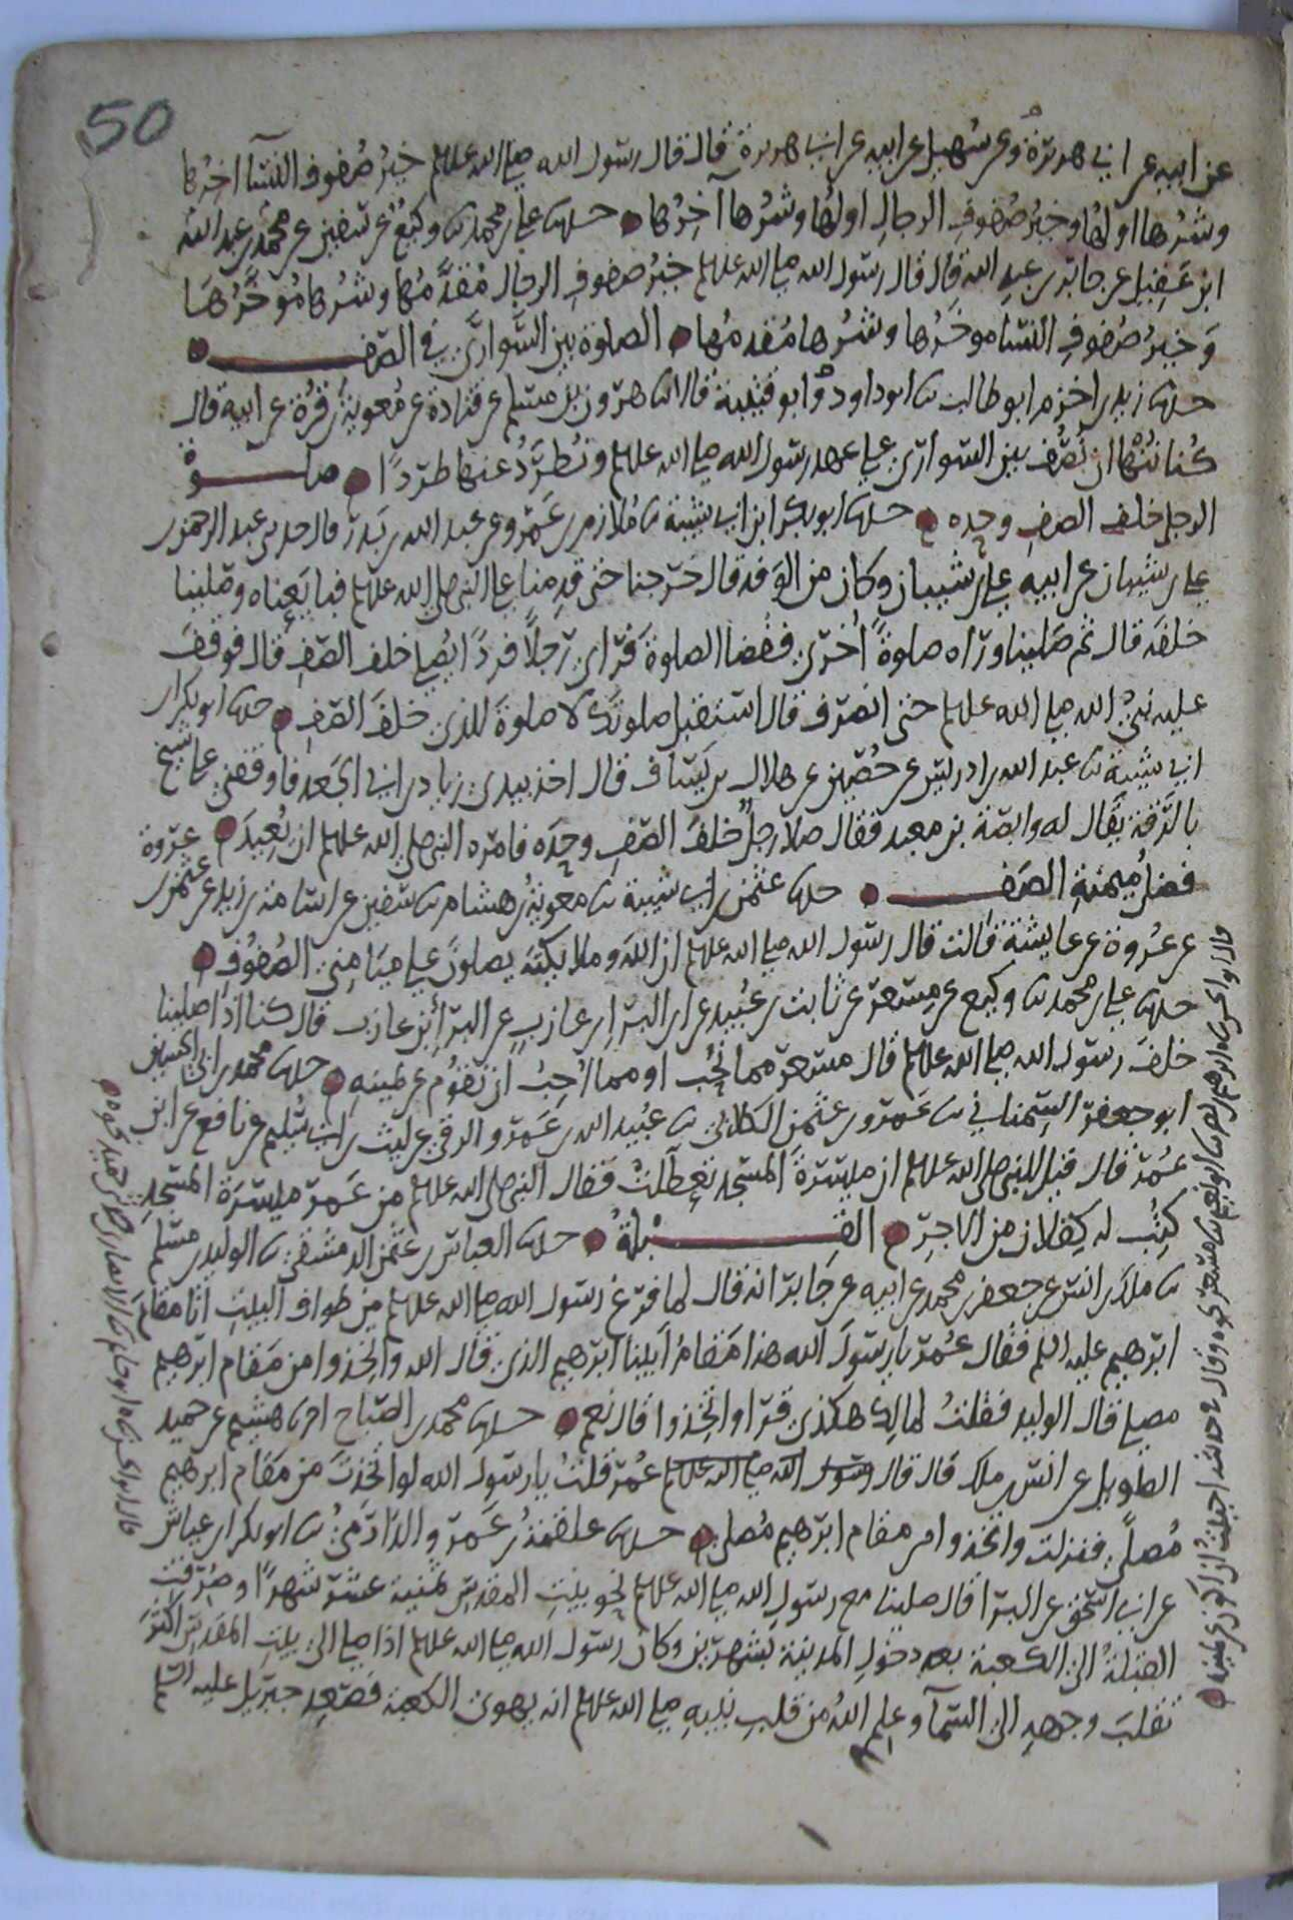 50
عن ابيه عن ابي هريرة وعن سهيل عن ابيه عن ابي هريرة قال قال رسول الله صلى الله عليه وسلم خير صفوف النسآ اخرها
وشرها اولها وخير صفوف الرجال اولها وشرها آخرها حدثنا علي بن محمد ثنا وكيع عن سفين عن محمد بن عبد الله
ابن عقيل عن جابر بن عبد الله قال قال رسول الله صلى الله عليه وسلم خير صفوف الرجال مقدمها وشرها مؤخرها
وخير صفوف النسا موخرها وشرها مقدمها الصلوة بين السواري في الصف
حدثنا زيد بن اخزم ابو طالب ثنا ابو داود وابو قتيبة قالا ثنا هرون بن مسلم عن قتادة عن معوية بن قرة عن ابيه قال
كنا ننها ان نصف بين السواري على عهد رسول الله صلى الله عليه وسلم ونطرد عنها طردا صلوة
الرجل خلف الصف وحده حدثنا ابو بكر ابن ابي شيبة ثنا ملازم بن عمرو عن عبد الله بن بدر قال حدثني عبد الرحمن بن
علي بن شيبان عن ابيه علي بن شيبان وكان من الوفد قال خرجنا حتى قدمنا على النبي صلى الله عليه وسلم فبايعناه وصلينا
خلفه قال ثم صلينا وراه صلوة اخرى فقضا الصلوة فراى رجلا فردا يصلي خلف الصف قال فوقف
عليه نبي الله صلى الله عليه وسلم حتى انصرف قال استقبل صلوتك لا صلوة للذي خلف الصف حدثنا ابو بكر بن
ابي شيبة ثنا عبد الله بن ادريس عن حصين عن هلال بن يساف قال اخذ بيدي زياد بن ابي الجعد فاوقفني على شيخ
بالرقة يقال له وابصة بن معبد فقال صلا رجل خلف الصف وحده فامره النبي صلى الله عليه وسلم ان يعيد
فضل ميمنة الصف حدثنا عثمن بن ابي شيبة ثنا معوية بن هشام ثنا سفين عن اسامة بن زيد عن عثمن بن عروة
عن عروة عن عايشة قالت قال رسول الله صلى الله عليه وسلم ان الله وملايكته يصلون على ميامن الصفوف
حدثنا علي بن محمد ثنا وكيع عن مسعر عن ثابت بن عبيد عن ابن البرا بن عازب عن البرا بن عازب قال كنا اذا صلينا
خلف رسول الله صلى الله عليه وسلم قال مسعر مما نحب او مما احب ان نقوم عن يمينه حدثنا محمد بن ابي الحسين
ابو جعفر السمناني ثنا عمرو بن عثمن الكلابي ثنا عبيد الله بن عمرو الرقي عن ليث بن ابي سليم عن نافع عن ابن
عمر قال قيل للنبي صلى الله عليه وسلم ان ميسرة المسجد تعطلت فقال النبي صلى الله عليه وسلم من عمر ميسرة المسجد
كتب له كفلان من الاجر القبلة حدثنا العباس بن عثمن الدمشقي ثنا الوليد بن مسلم
ثنا ملك بن انس عن جعفر بن محمد عن ابيه عن جابر انه قال لما فرغ رسول الله صلى الله عليه وسلم من طواف البيت اتا مقام
ابرهيم عليه السلم فقال عمر يا رسول الله هذا مقام ابينا ابرهيم الذي قال الله واتخذوا من مقام ابرهيم
مصلى قال الوليد فقلت لمالك هكذى قرا واتخذوا قال نعم حدثنا محمد بن الصباح اخبرنا هشيم عن حميد
الطويل عن انس بن ملك قال قال رسول الله صلى الله عليه وسلم عمر قلت يا رسول الله لو اتخذت من مقام ابرهيم
مصلى فنزلت واتخذوا من مقام ابرهيم مصلى حدثنا علقمة بن عمرو الدارمي ثنا ابو بكر بن عياش
عن ابي اسحق عن البرا قال صلينا مع رسول الله صلى الله عليه وسلم نحو بيت المقدس ثمنية عشر شهرا وصرفت
القبلة الى الكعبة بعد دخول المدينة بشهرين وكان رسول الله صلى الله عليه وسلم اذا صلى الى بيت المقدس اكثر
تقلب وجهه الى السمآ وعلم الله من قلب نبيه صلى الله عليه وسلم انه يهوى الكعبة فصعد جبريل عليه السلم